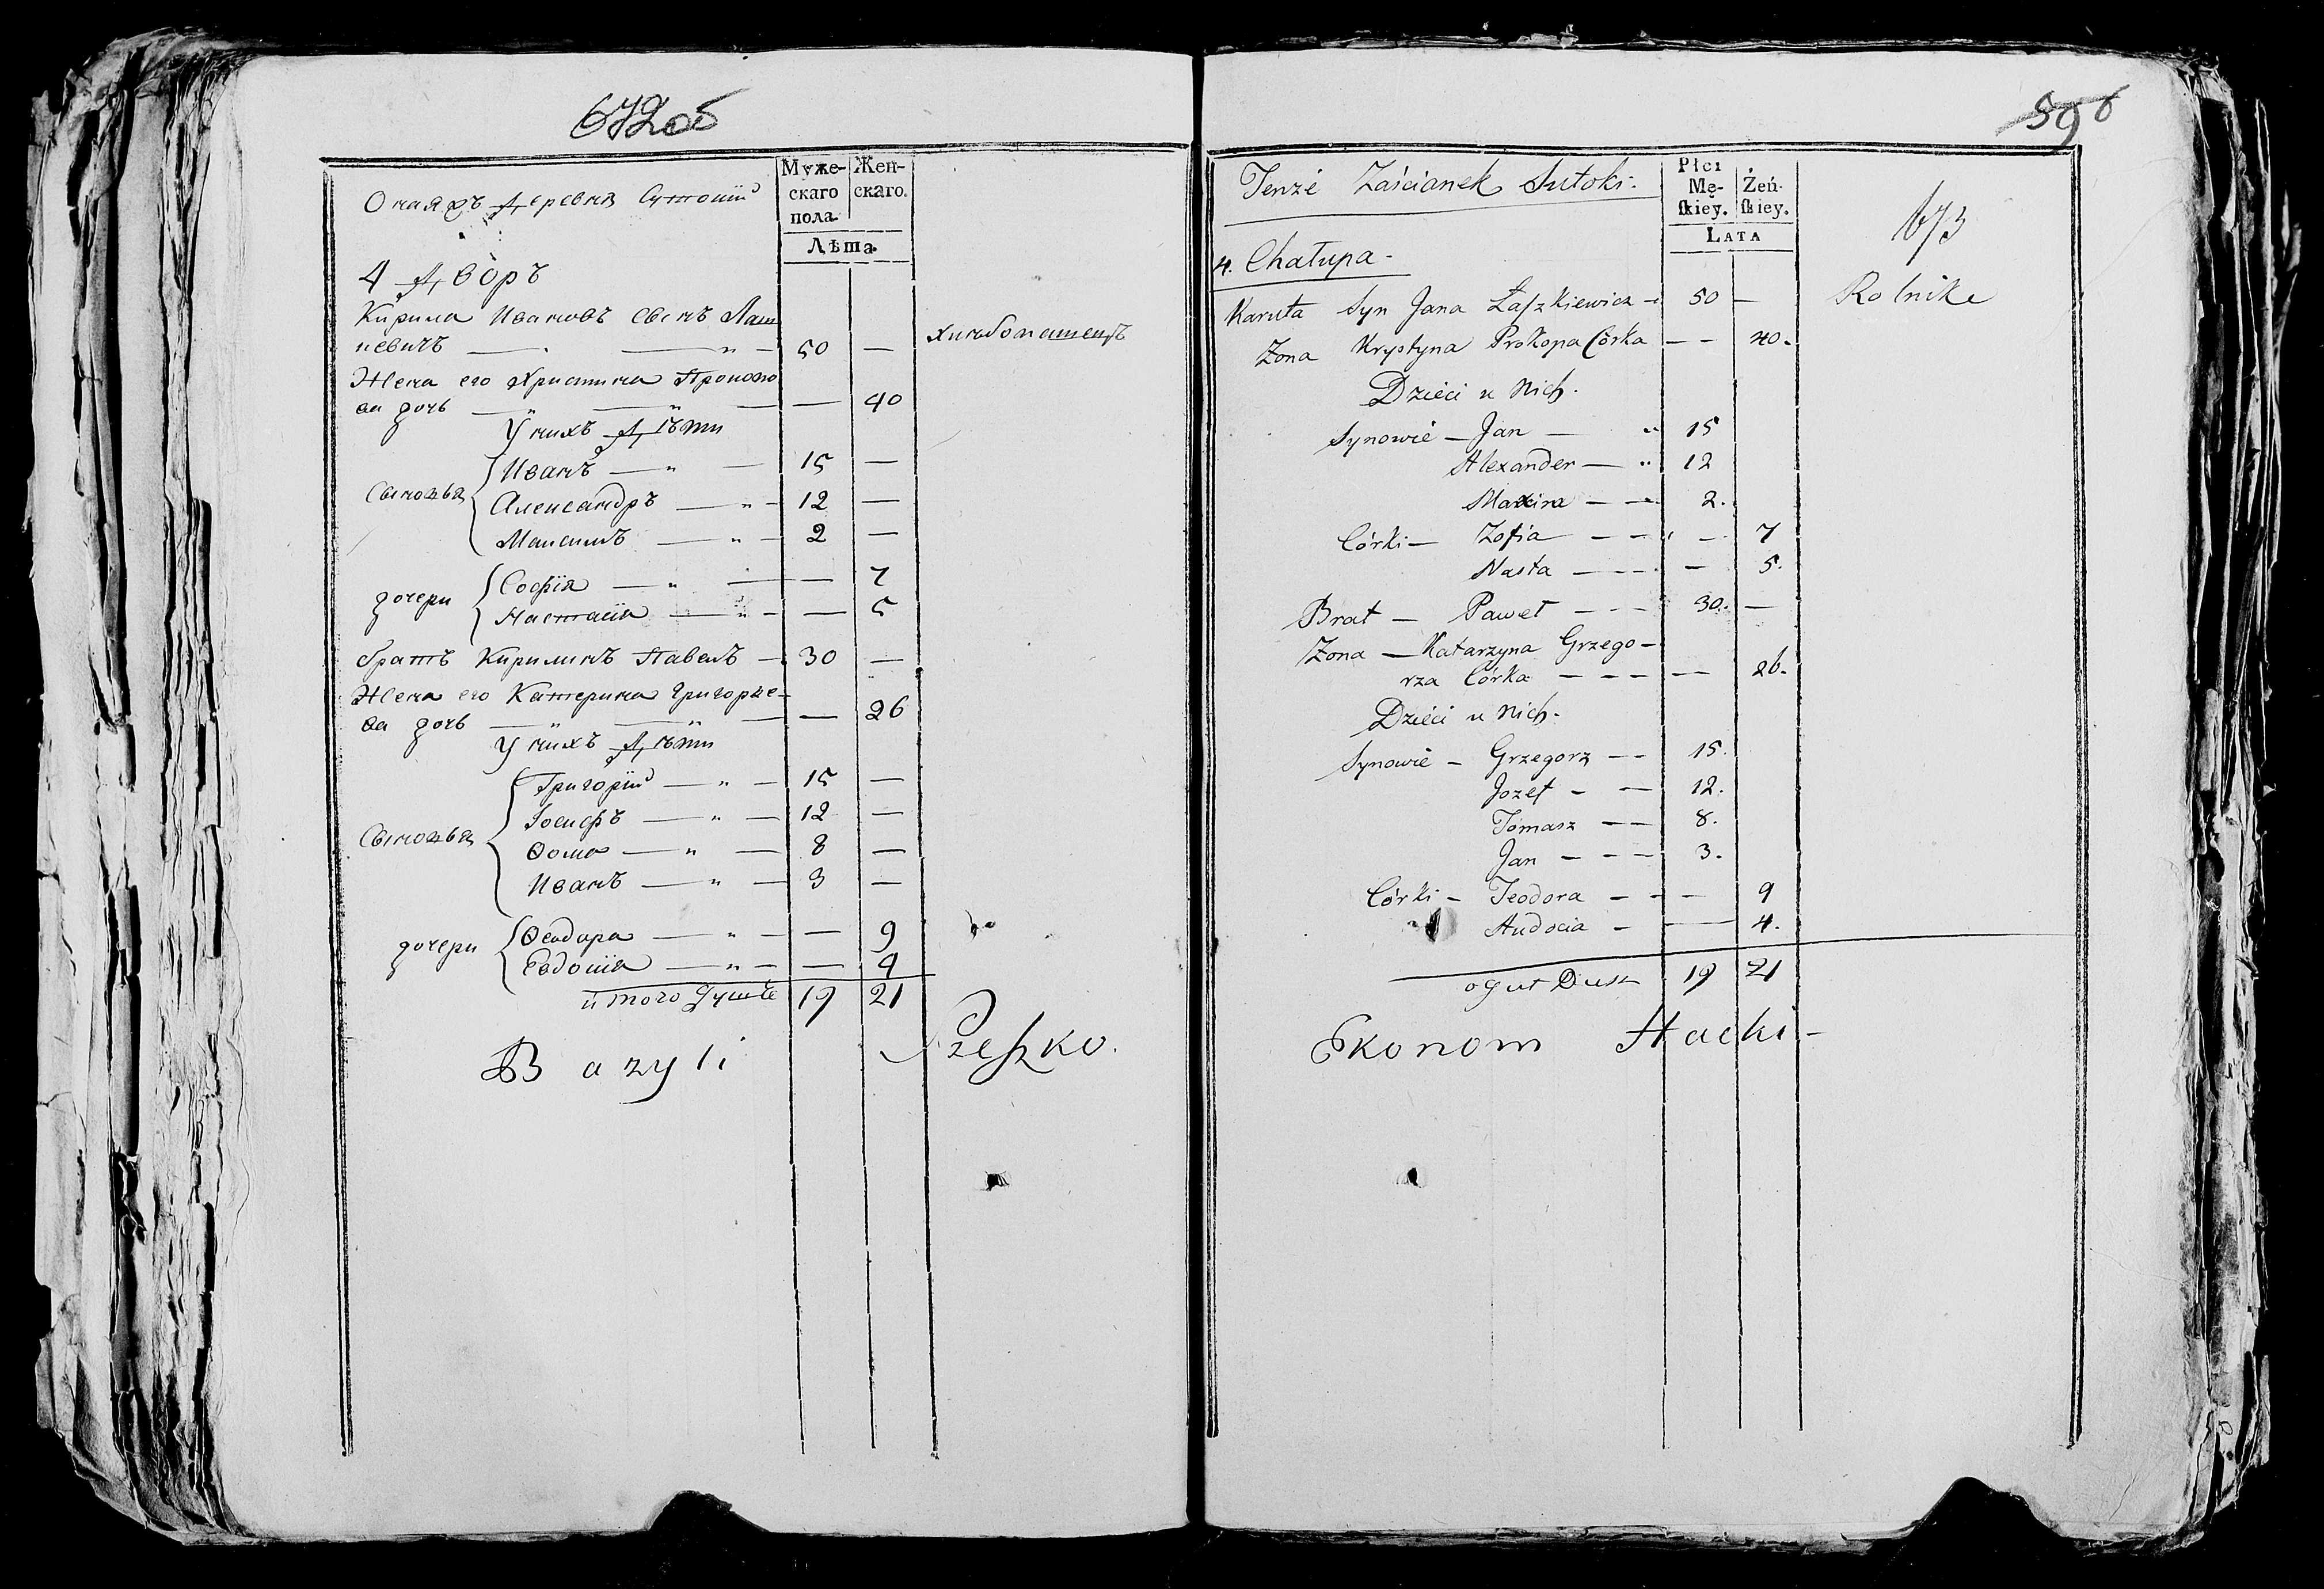 672об
Муже-
скаго
пола.
Жен-
скаго.
Лѣта.
Онаяжъ деревня Сутокій
4 Дворъ
Кирила Ивановъ Сынъ Лаш
кевичъ — „ — 50 —
хлѣбопашецъ
Жена его Христина Прокопо
ва дочь — „ — „ — — 40
У нихъ Дѣти
Сыновья
Иванъ — „ — 15 —
Александръ — „ — 12 —
Максимъ — „ — 2 —
дочери
Софія — „ — — 7
Настасія — „ — — 5
братъ Кирилинъ Павелъ — 30 —
Жена его Катерина Григорье-
ва дочь — „ — „ — — 26
У нихъ Дѣти
Сыновья
Григорій — „ — 15 —
Іосифъ — „ — 12 —
Ѳома — „ — 8 —
Иванъ — „ — 3 —
дочери
Ѳеодора — „ — — 9
Евдокія — „ — — 4
итого душъ 19 21
Bazyli Szeszko.
596
673
Płci
Mę-
skiey.
Żeń-
skiey.
LATA
Tenże Zaścianek Sutoki.
4. Chałupa -
Karuta Syn Jana Łaszkiewicz - 50 —
Rolnike
Żona Krystyna Prokopa Córka — — 40.
Dzieci u Nich.
Synowie — Jan — „ 15
Alexander — „ 12
Maxim — — 2.
Córki — Zofia — — — 7
Nasta — — — 5.
Brat — Paweł — — 30. —
Żona — Katarzyna Grzego-
rza Córka — — — — 26.
Dzieci u Nich.
Synowie — Grzegorz — — 15.
Jozef - — 12.
Tomasz — — 8.
Jan — — — 3.
Córki — Teodora — — — 9
Audocia — — 4.
ogul Dusz 19 21
Ekonom Hacki -